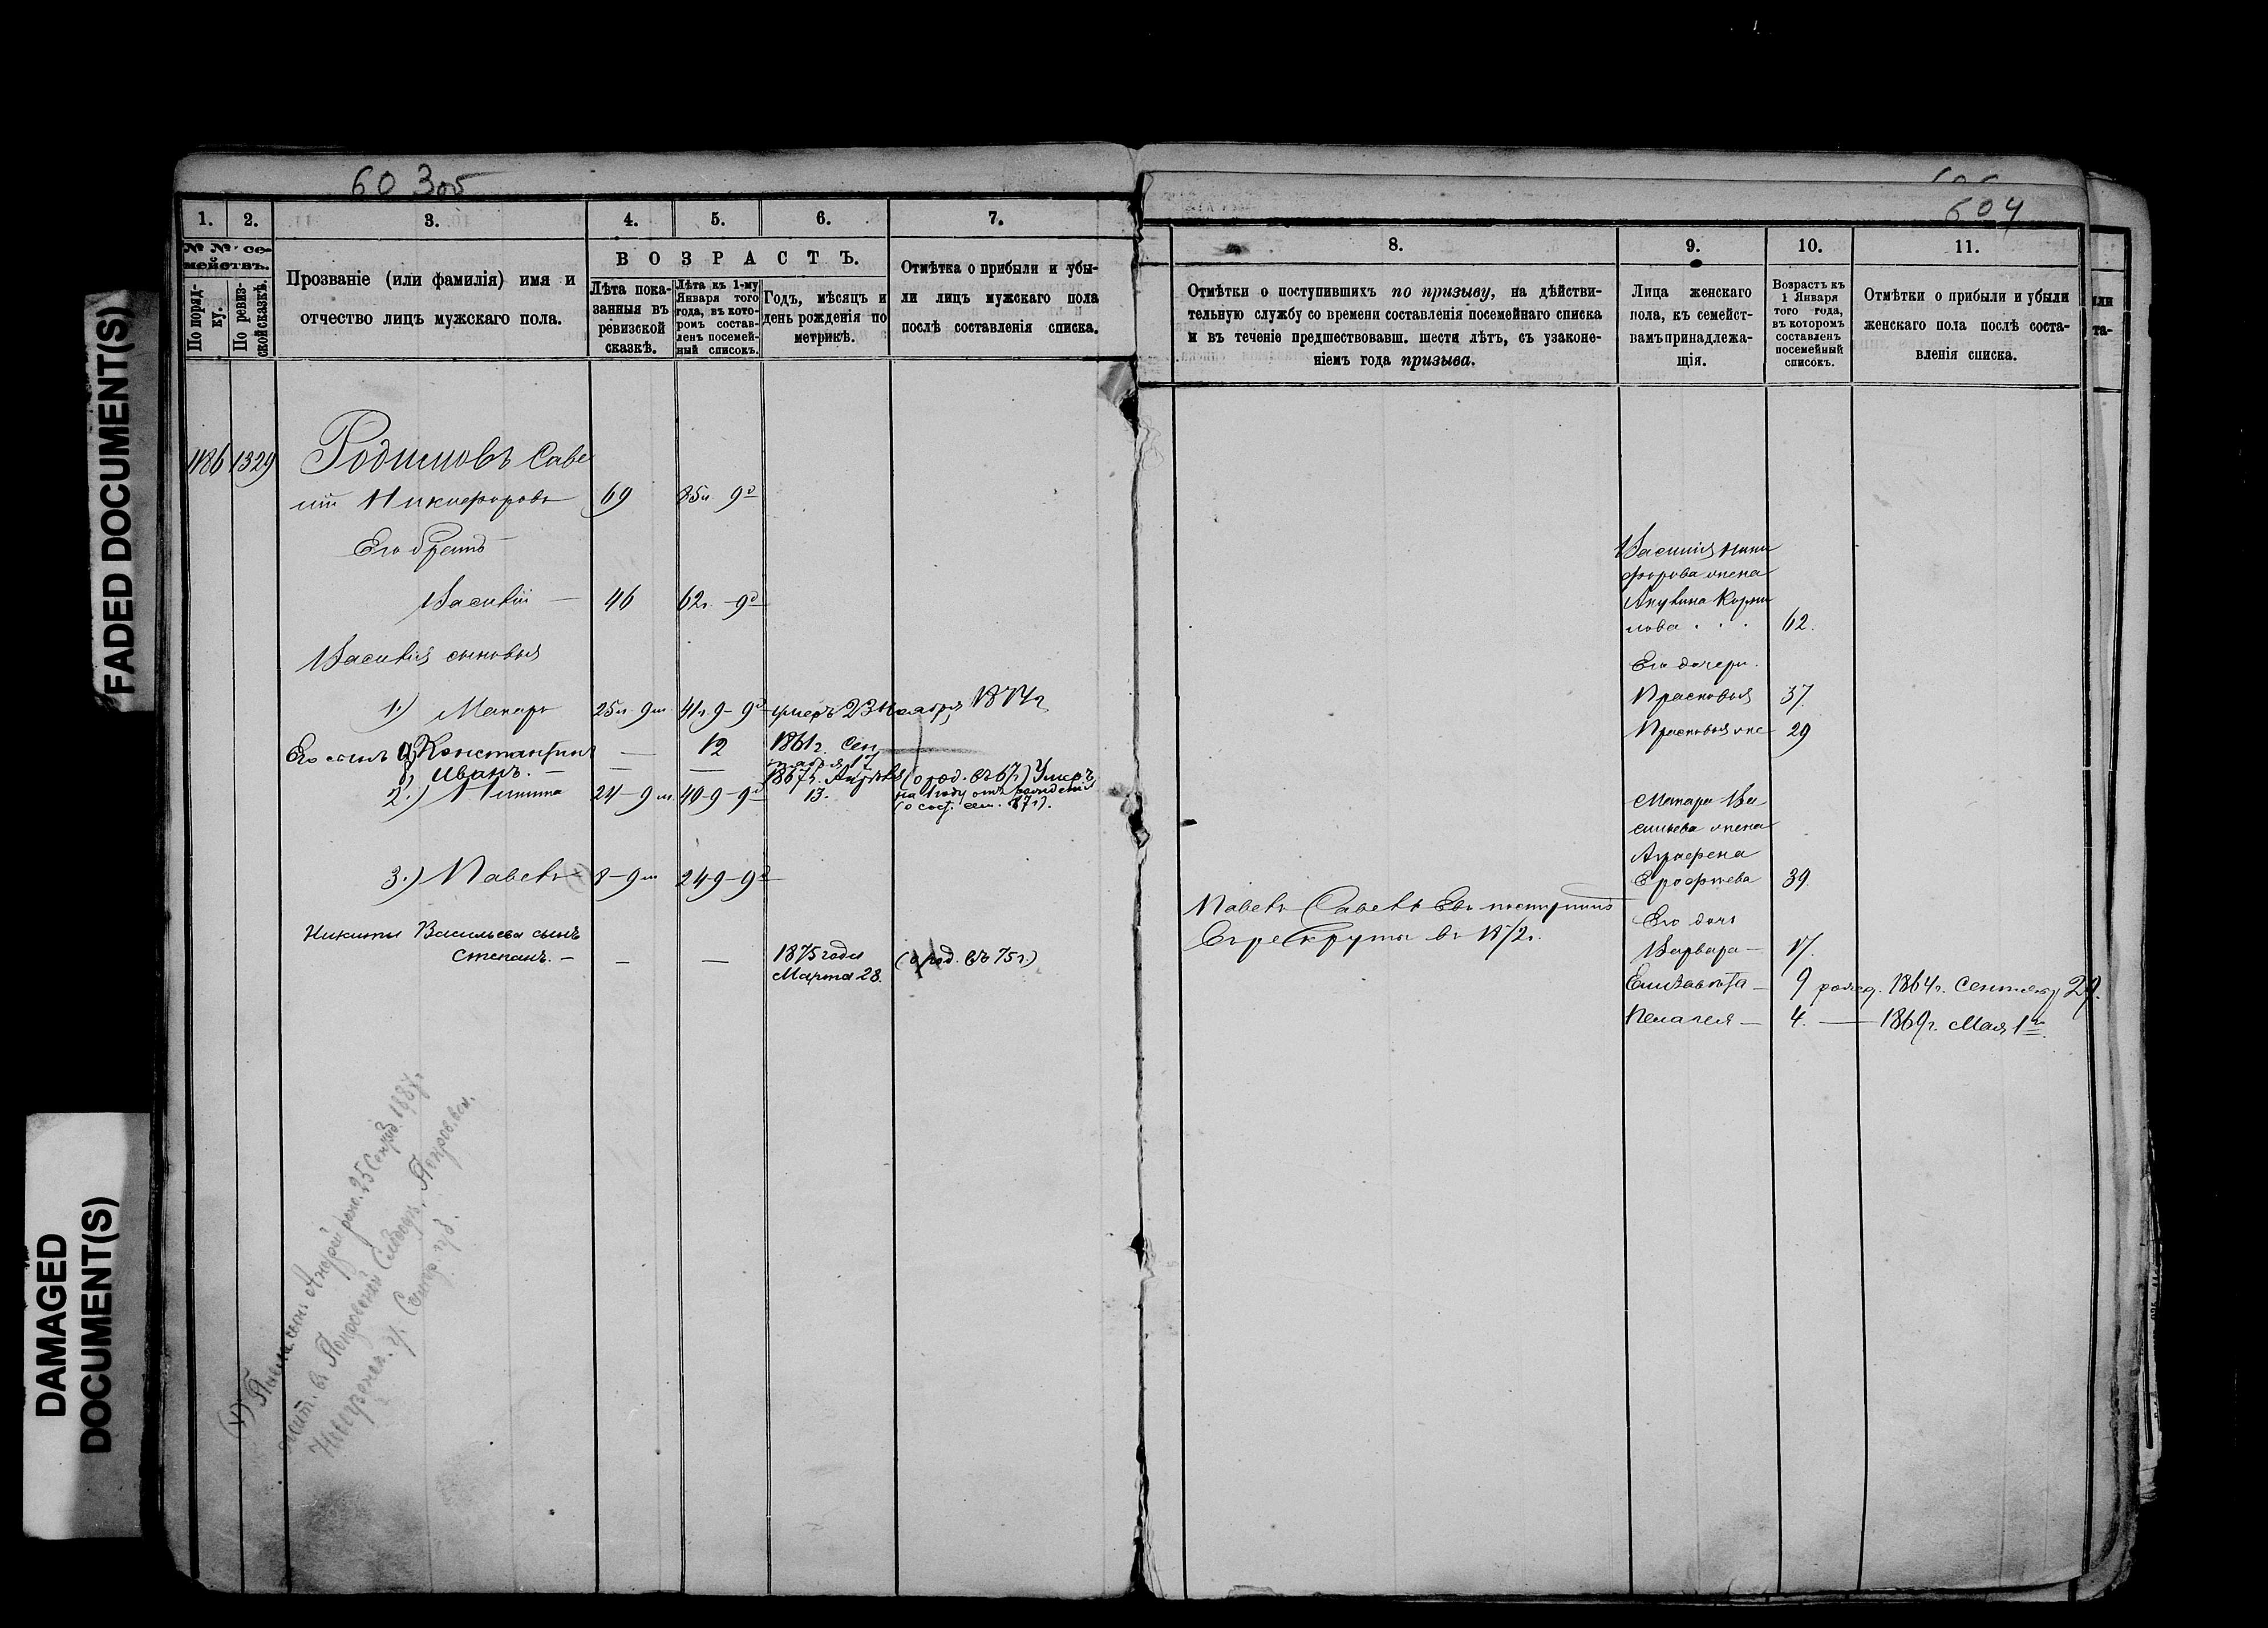 FADED DOCUMENT(S)
DAMAGED
DOCUMENT(S)
60 305
604
1.
2.
3.
4.
5.
6.
7.
№ № се-
мействъ.
По поряд-
ку.
По ревиз-
ской сказкѣ.
Прозваніе (или фамилія) имя и
отчество лицъ мужскаго пола.
ВОЗРАСТЪ.
Лѣта пока-
занныя въ
ревизской
сказкѣ.
Лѣта къ 1-му
Января того
года, въ кото-
ромъ состав-
ленъ посемей-
ный списокъ.
Годъ, мѣсяцъ и
день рожденія по
метрикѣ.
Отмѣтка о прибыли и убы-
ли лицъ мужскаго пола
послѣ составленія списка.
1186 1329 Родимовъ Саве
лій Никифоровъ 69 85л. 9д
Его братъ
Василій — 46 62г. — 9д
Василія сыновья
1.) Макаръ 25л. 9м. 41г. 9 — 9д умеръ 23 Ноября 1874г.
Его сынъ Константинъ — 12 1861г. Сен
тября 17
Иванъ. — — — 1867г. Апрѣля (о род. въ 67г.) Умеръ
2.) Никита 24 — 9м. 40-9-9д 13. на 1 году отъ рожденія
3.) Павелъ 8 — 9м 24-9-9д
Никиты Васильева сынъ
Степанъ. — — — 1875 года (о род. въ 75г.)
Марта 28.
Павла сынъ Андрей рожд. 25 Сентяб. 1887г.
въ Покровской Слободѣ, Покровск.
Новоузенск. у. Самар. губ.
8.
9.
10.
11.
Отмѣтки о поступившихъ по призыву, на дѣйстви-
тельную службу со времени составленія посемейнаго списка
и въ теченіе предшествовавш. шести лѣтъ, съ узаконе-
ніемъ года призыва.
Лица женскаго
пола, къ семейст-
вамъ принадлежа-
щія.
Возрастъ къ
1 Января
того года,
въ которомъ
составленъ
посемейный
списокъ.
Отмѣтки о прибыли и убыли
женскаго пола послѣ соста-
вленія списка.
Василія Ники
форова жена
Акулина Корни
лова . . . 62.
Его дочери.
Прасковья 37.
Прасковья 29
Макара Ва
сильева жена
Аграфена
Ерофѣева 39.
Павелъ Савельевъ поступилъ
въ рекруты въ 1872г.
Его дочь
Варвара — 17.
Елизавета — 9 рожд. 1864г. Сентябр 29.
Пелагея — 4. — 1869г. Мая 1го